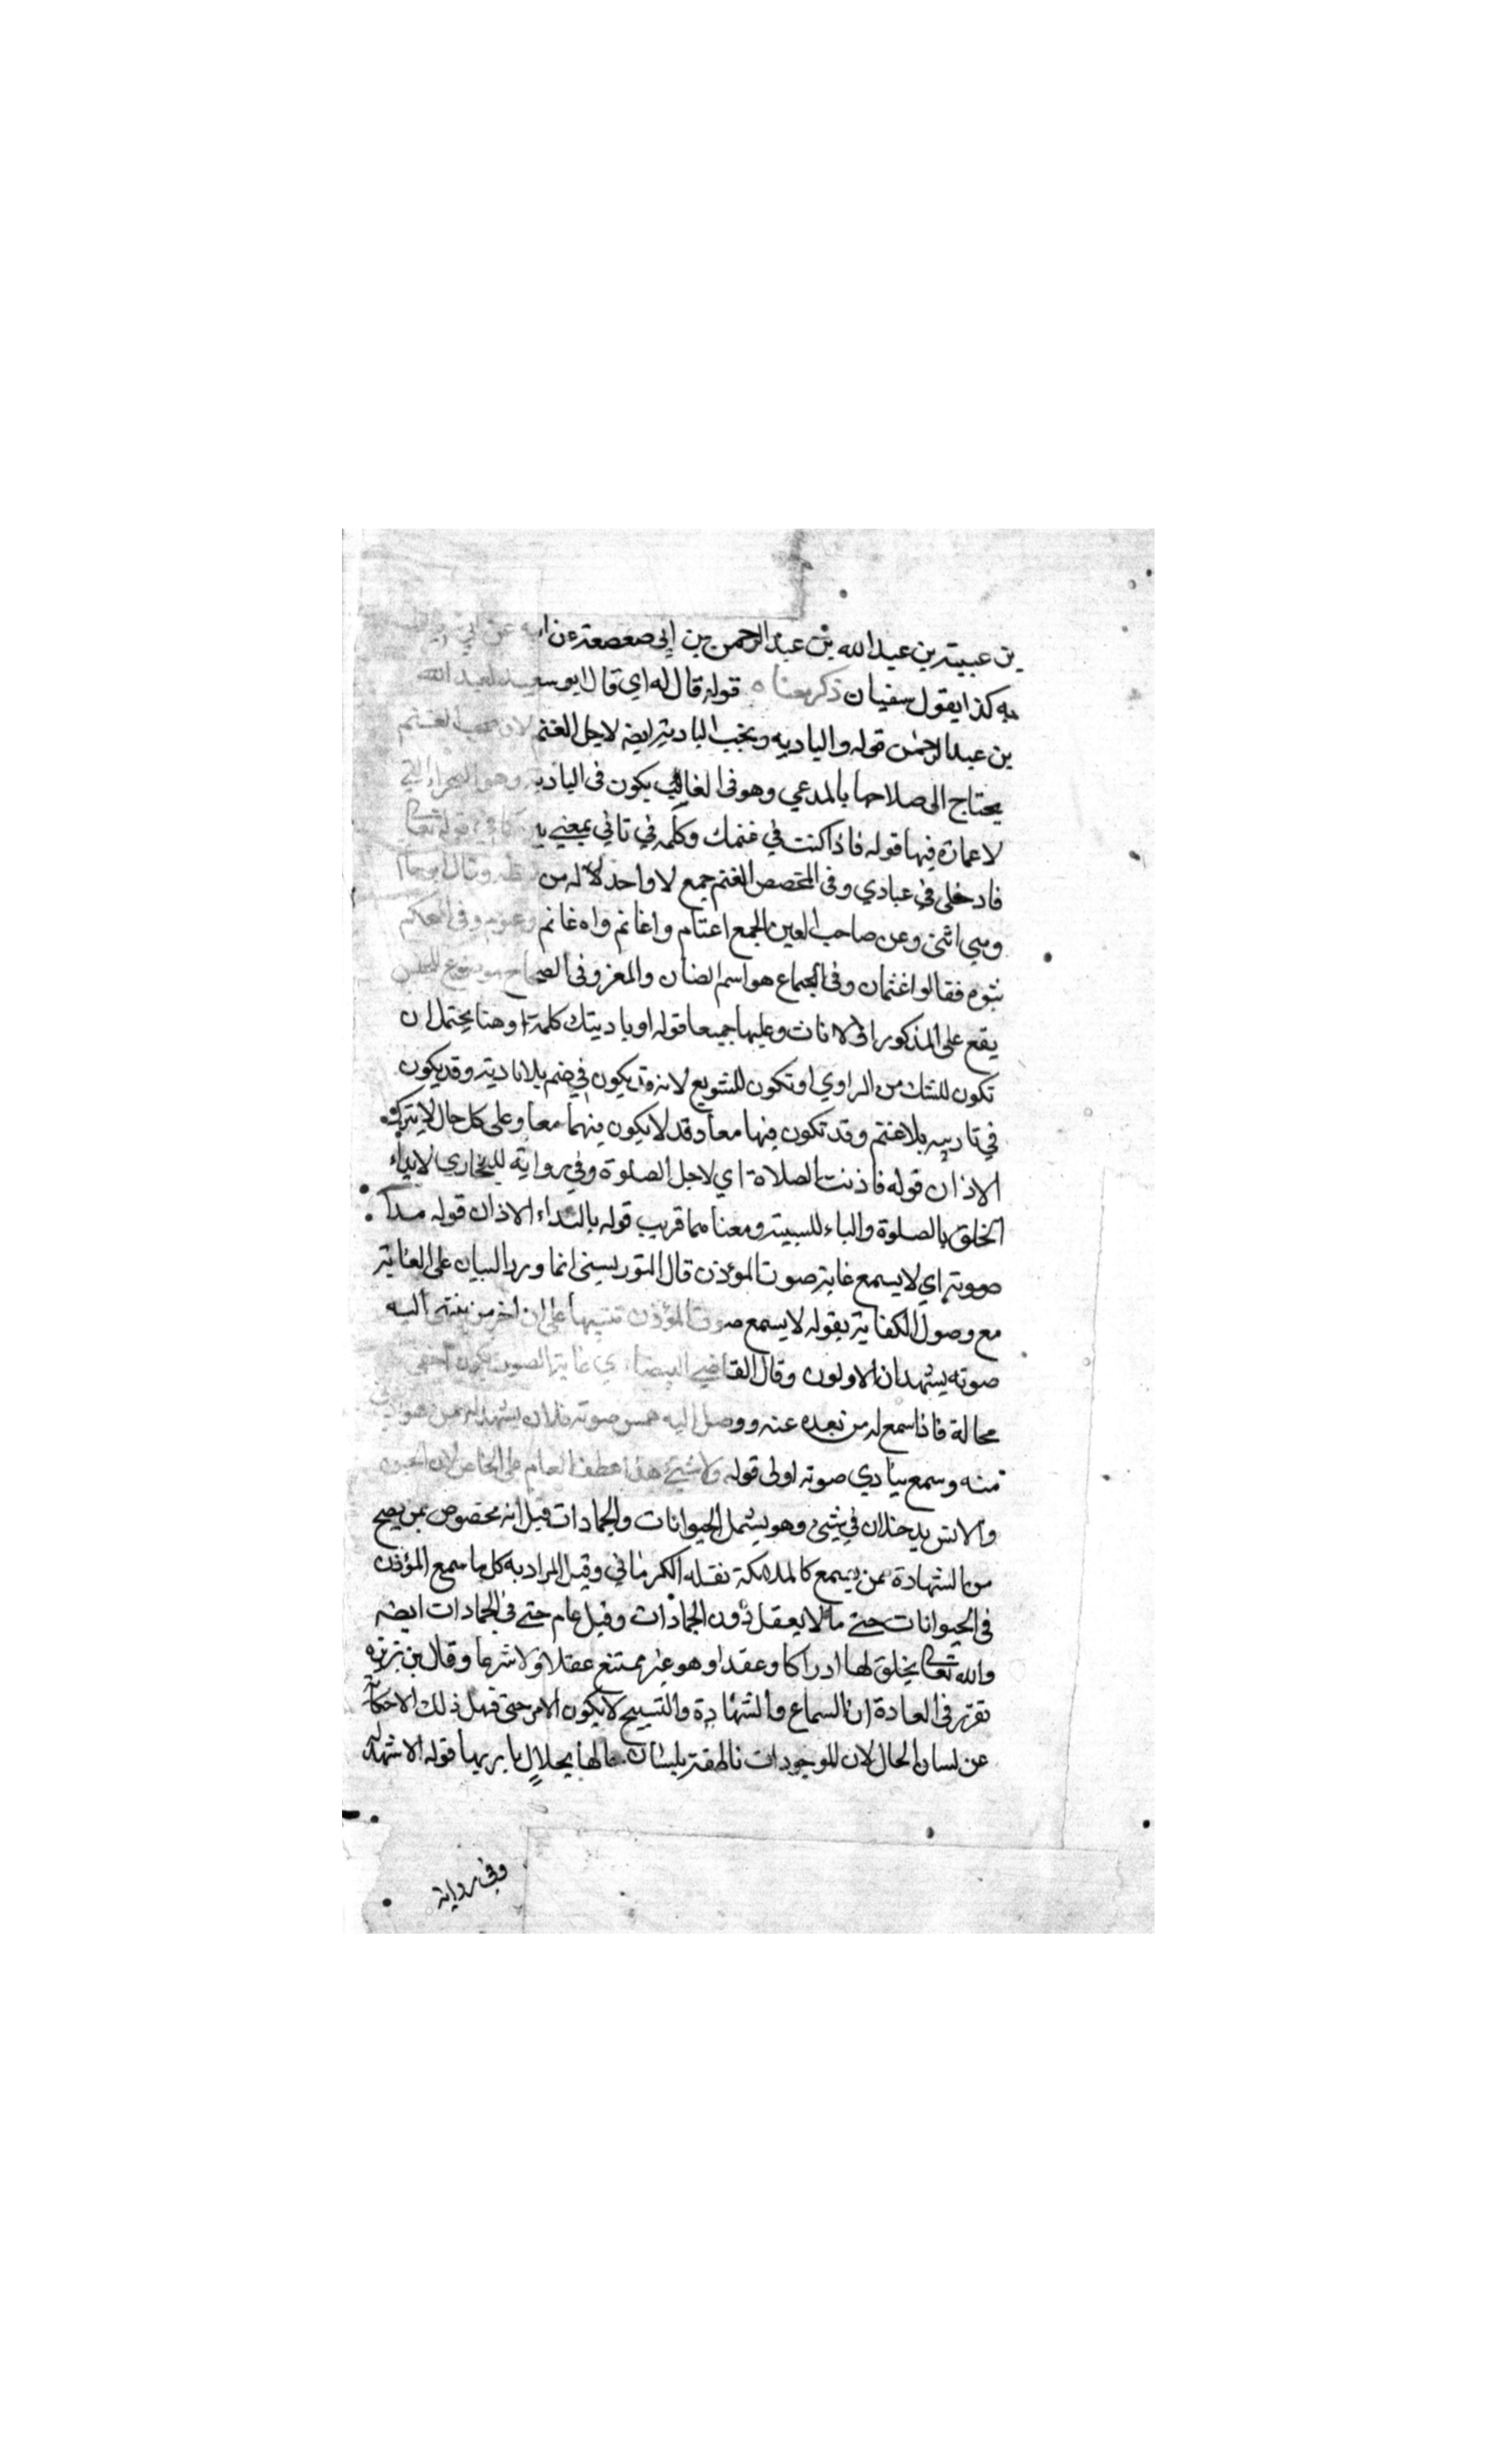 بن عيينة بن عبد الله بن عبد الرحمن بن ابي صعصعة عن ابيه عن ابي
به كذا يقول سفيان ذكر معناه قوله قال له اي قال ابو سعيد لعبد الله
بن عبد الرحمن قوله والباديه ويحب البادية ايضا لاجل الغنم لان محب الغنم
يحتاج الى صلاحها بالمدعي وهو في الغالب يكون في البادية وهو الصحراء التي
لا عمارة فيها قوله فاذا كنت في غنمك وكلمة في تاتي بمعنى بين كما في قوله تعالى
فادخلي في عبادي وفي المخصص الغنم جمع لا واحد له من لفظه وقال ابو حاتم
وهي انثى وعن صاحب العين الجمع اغنام واغانم وغنوم وفي المحكم
ثنوه فقالوا غنمان وفي الجماع هو اسم الضان والمعز وفي الصحاح موضوع للجنس
يقع على المذكور الى الاناث وعليها جميعا قوله او باديتك كلمة او هنا يحتمل ان
تكون للشك من الراوي او تكون للتنويع لانه قد يكون في غنم بلا بادية وقد يكون
في بلا غنم وقد تكون فيها معا وقد لا يكون فيهما معا وعلى كل حال لا يترك
الاذان قوله فاذنت الصلاة اي لاجل الصلوة وفي رواية للبخاري
بالصلوة والباء للسببية ومعناهما قريب قوله بالنداء الاذان قوله مدا
صوته اي لا يسمع غاية صوت المؤذن قال التوربستي انما ورد البيان على الغاية
مع وصول الكفاية بقوله لا يسمع صوت المؤذن تنبيها على ان اخر من ينتهى اليه
صوته يشهد ان الاولون وقال القاضي البيضاوي غاية الصوت يكون اخفى
محالة فاذا سمع له من بعده عنه ووصل اليه همس صوته فلان يشهد له من هو ادنى
منه وسمع ينادي صوته اولى قوله ولا شيئ هذا عطف العام على الخاص لان الجن
والانس يدخلان في شيئ وهو يشمل الحيوانات والجمادات قيل انه مخصوص بمن يصح
من الشهادة ممن يسمع كالملائكة نقله الكرماني وقيل المراد به كل ما سمع المؤذن
في الحيوانات حتى ما لا يعقل دون الجمادات وقيل عام حتى في الجمادات ايضا
والله تعالى يخلق لها ادراكا وعقلا وهو غير ممتنع عقلا ولا شرعا وقال بن بزيزه
تقرر في العادة ان السماع والشهادة والتسبيح لا يكون الا من حي فهل ذلك الا حكاية
عن لسان الحال لان الموجودات ناطقة بلسان حالها بجلال باريها قوله الا شهد له
وفي رواية